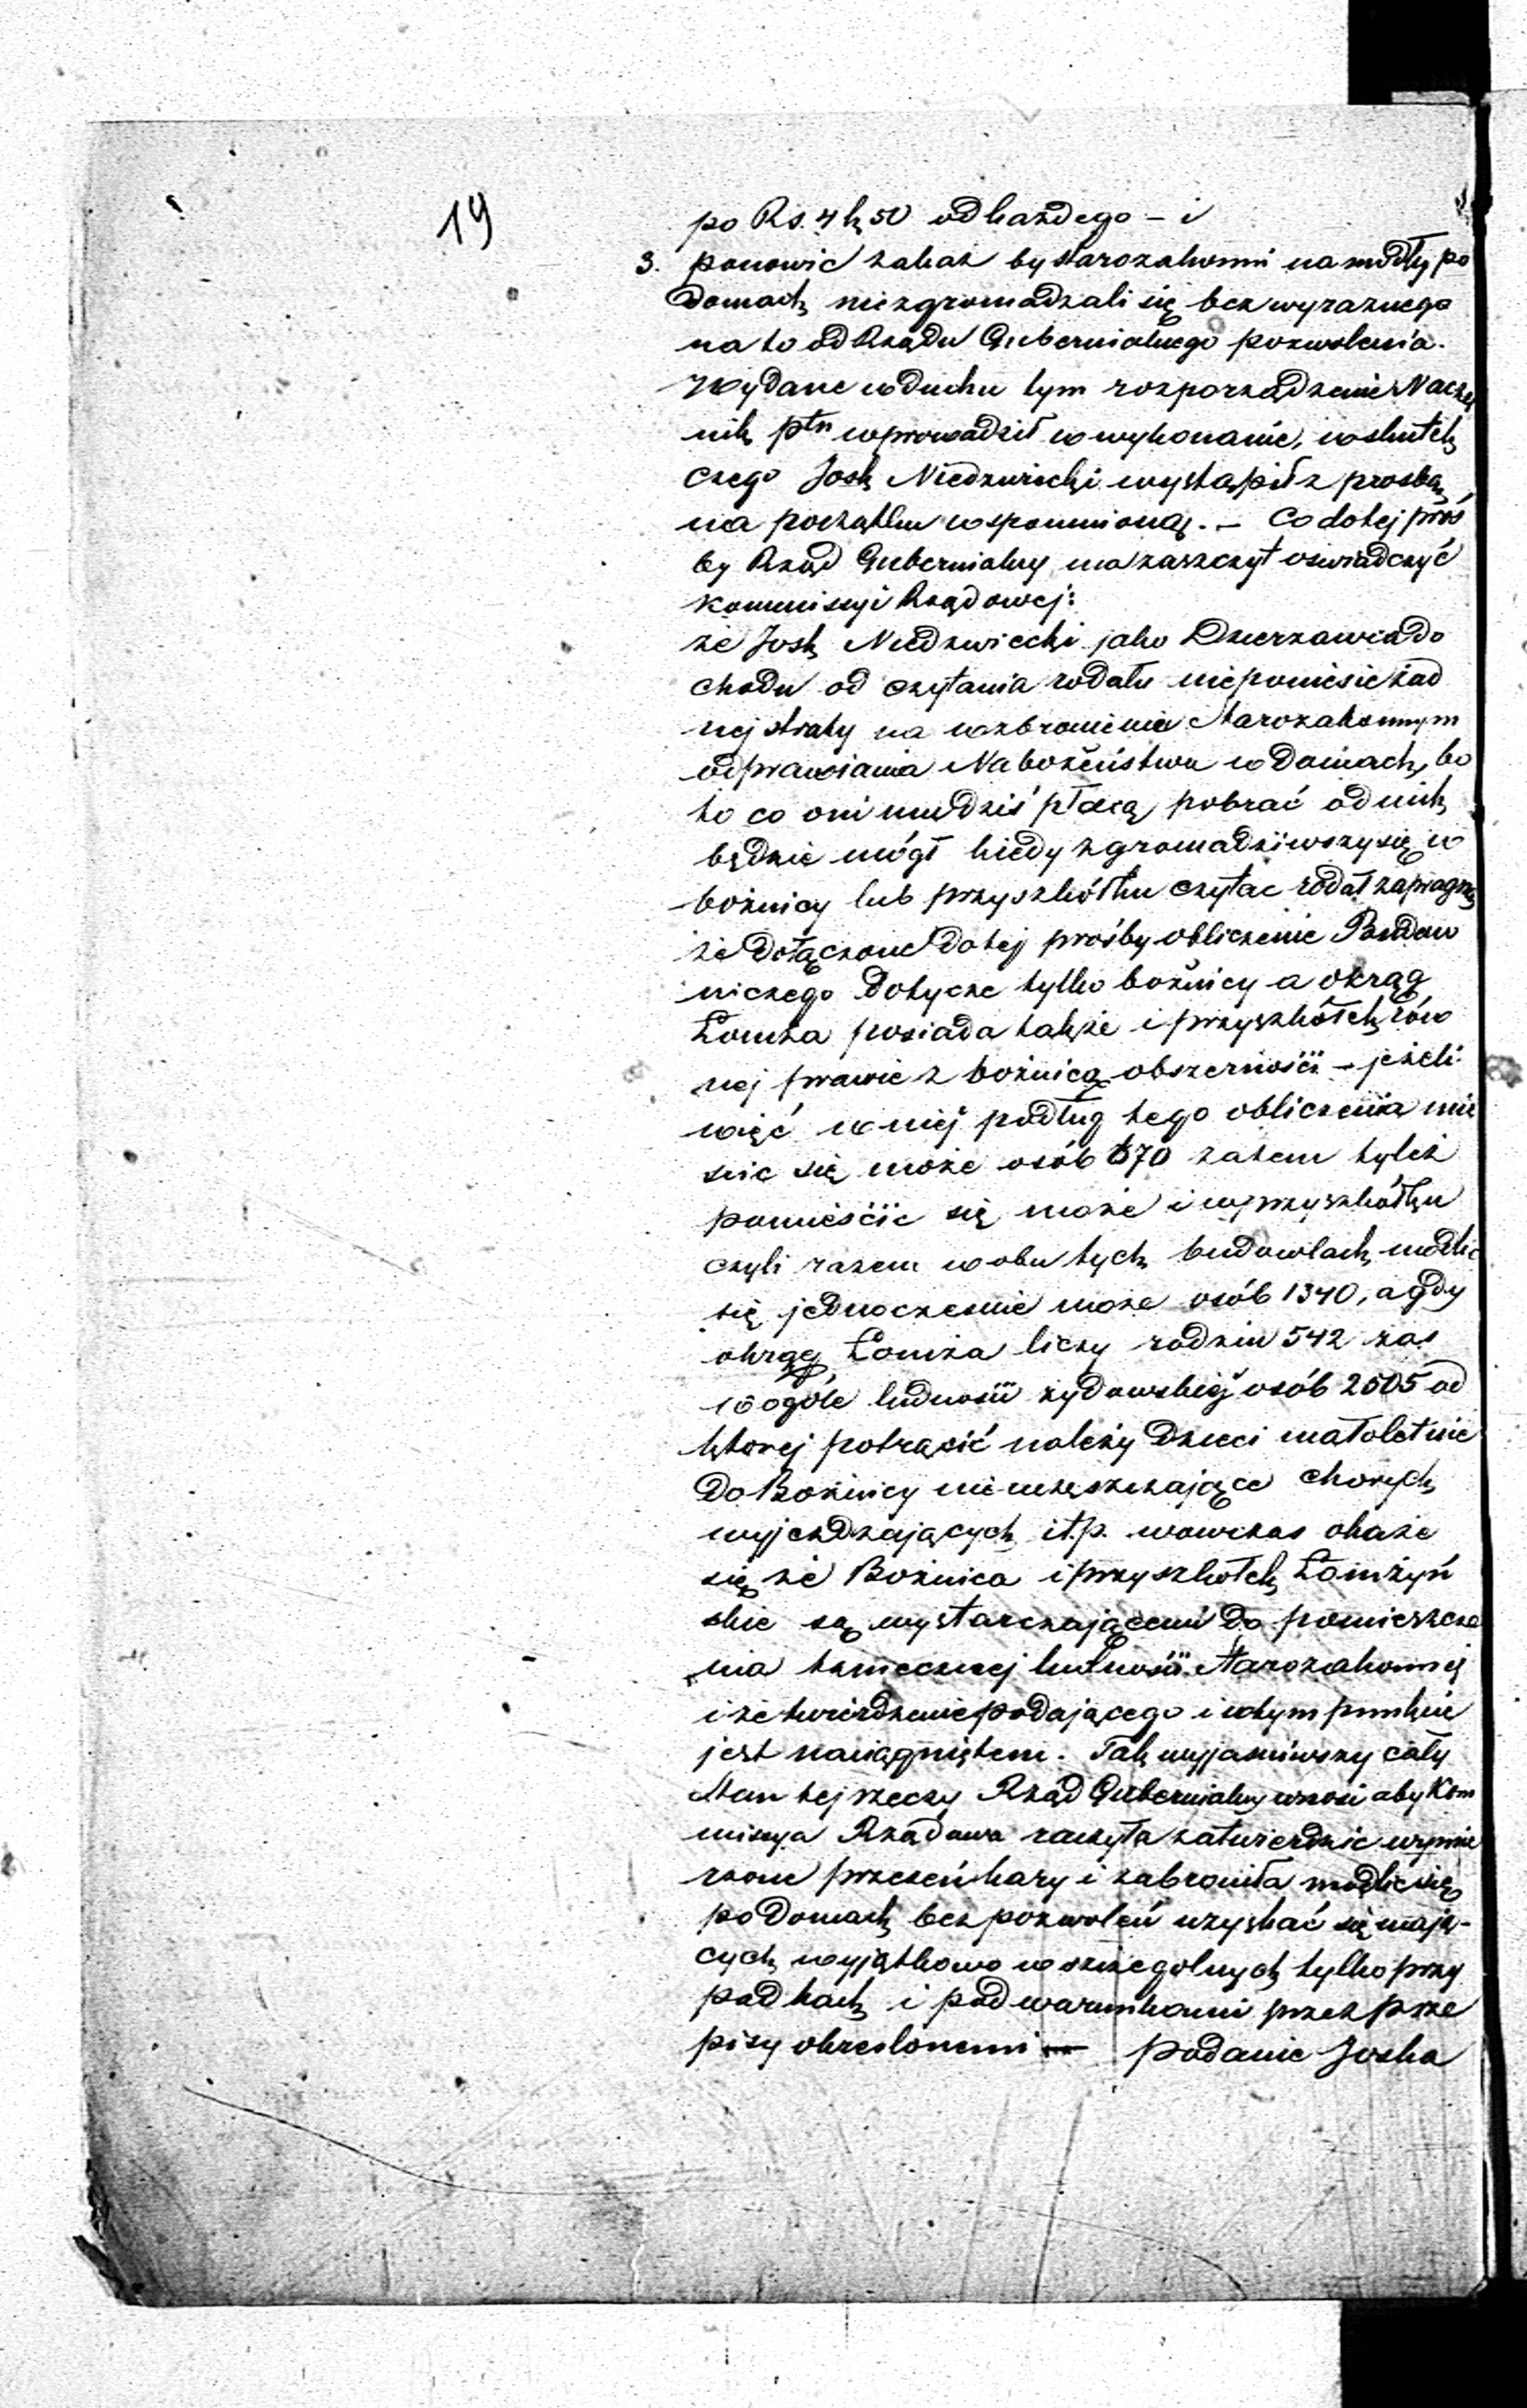 19
po Rs. 4 k 50 od każdego – i
3. ponowić zakaz by starozakonni na modły po
domach niezgromadzali się bez wyraznego
na to od Rządu Gubernialnego pozwolenia.
Wydane w duchu tym rozporządzenie Naczel
nik ptu wprowadził w wykonanie, w skutek
czego Josk Niedzwiecki wystąpił z prosbą
na początku wspomnioną. – Co do tej proś
by Rząd Gubernialny ma zaszczyt oswiadczyć
Kommissyi Rządowej:
że Josk Niedzwiecki jako Dzierzawca do
chodu od czytania rodału nieponiesie żad
nej straty na wzbronienie Starozakonnym
odprawiania Nabożeństwa w domach, bo
to co oni mu dziś płacą, pobrać od nich
będzie mógł kiedy zgromadziwszy się w
bożnicy lub przyszkółku czytac rodał zapragną
że dołączone do tej prośby obliczenie Budow
niczego dotycze tylko bożnicy a okrąg
Łomża posiada także i przyszkółek rów
nej prawie z bożnicą obszerności – jeżeli
więc w niej podług tego obliczenia mie
scic się może osób 670 zatem tyleż
pomieścic się może i w przyszkółku
czyli razem w obu tych budowlach modlić
się jednoczesnie może osób 1340, a gdy
okrąg Łomża liczy rodzin 542 zas
w ogóle ludnosci zydowskiej osób 2605 od
której potrącić należy Dzieci małoletnie
do Bożnicy nieuczęszczające chorych
wyjezdzających itp. wowczas okaże
się że Bożnica i przyszkołek Łomżyń
skie są wystarczającemi do pomieszcze
nia tamecznej ludnosci Starozakonnej
i że twierdzenie podającego i w tym punkcie
jest naciągniętem. Tak wyjasniwszy cały
stan tej rzeczy Rząd Gubernialny wnosi aby Kom
missya Rządowa raczyła zatwierdzic wymie
rzone przezeń kary i zabroniła modlic się
po Domach bez pozwoleń uzyskać się mają-
cych wyjątkowo w szczegolnych tylko przy
padkach i pod warunkami przez prze
pisy okreslonemi – podanie Joska